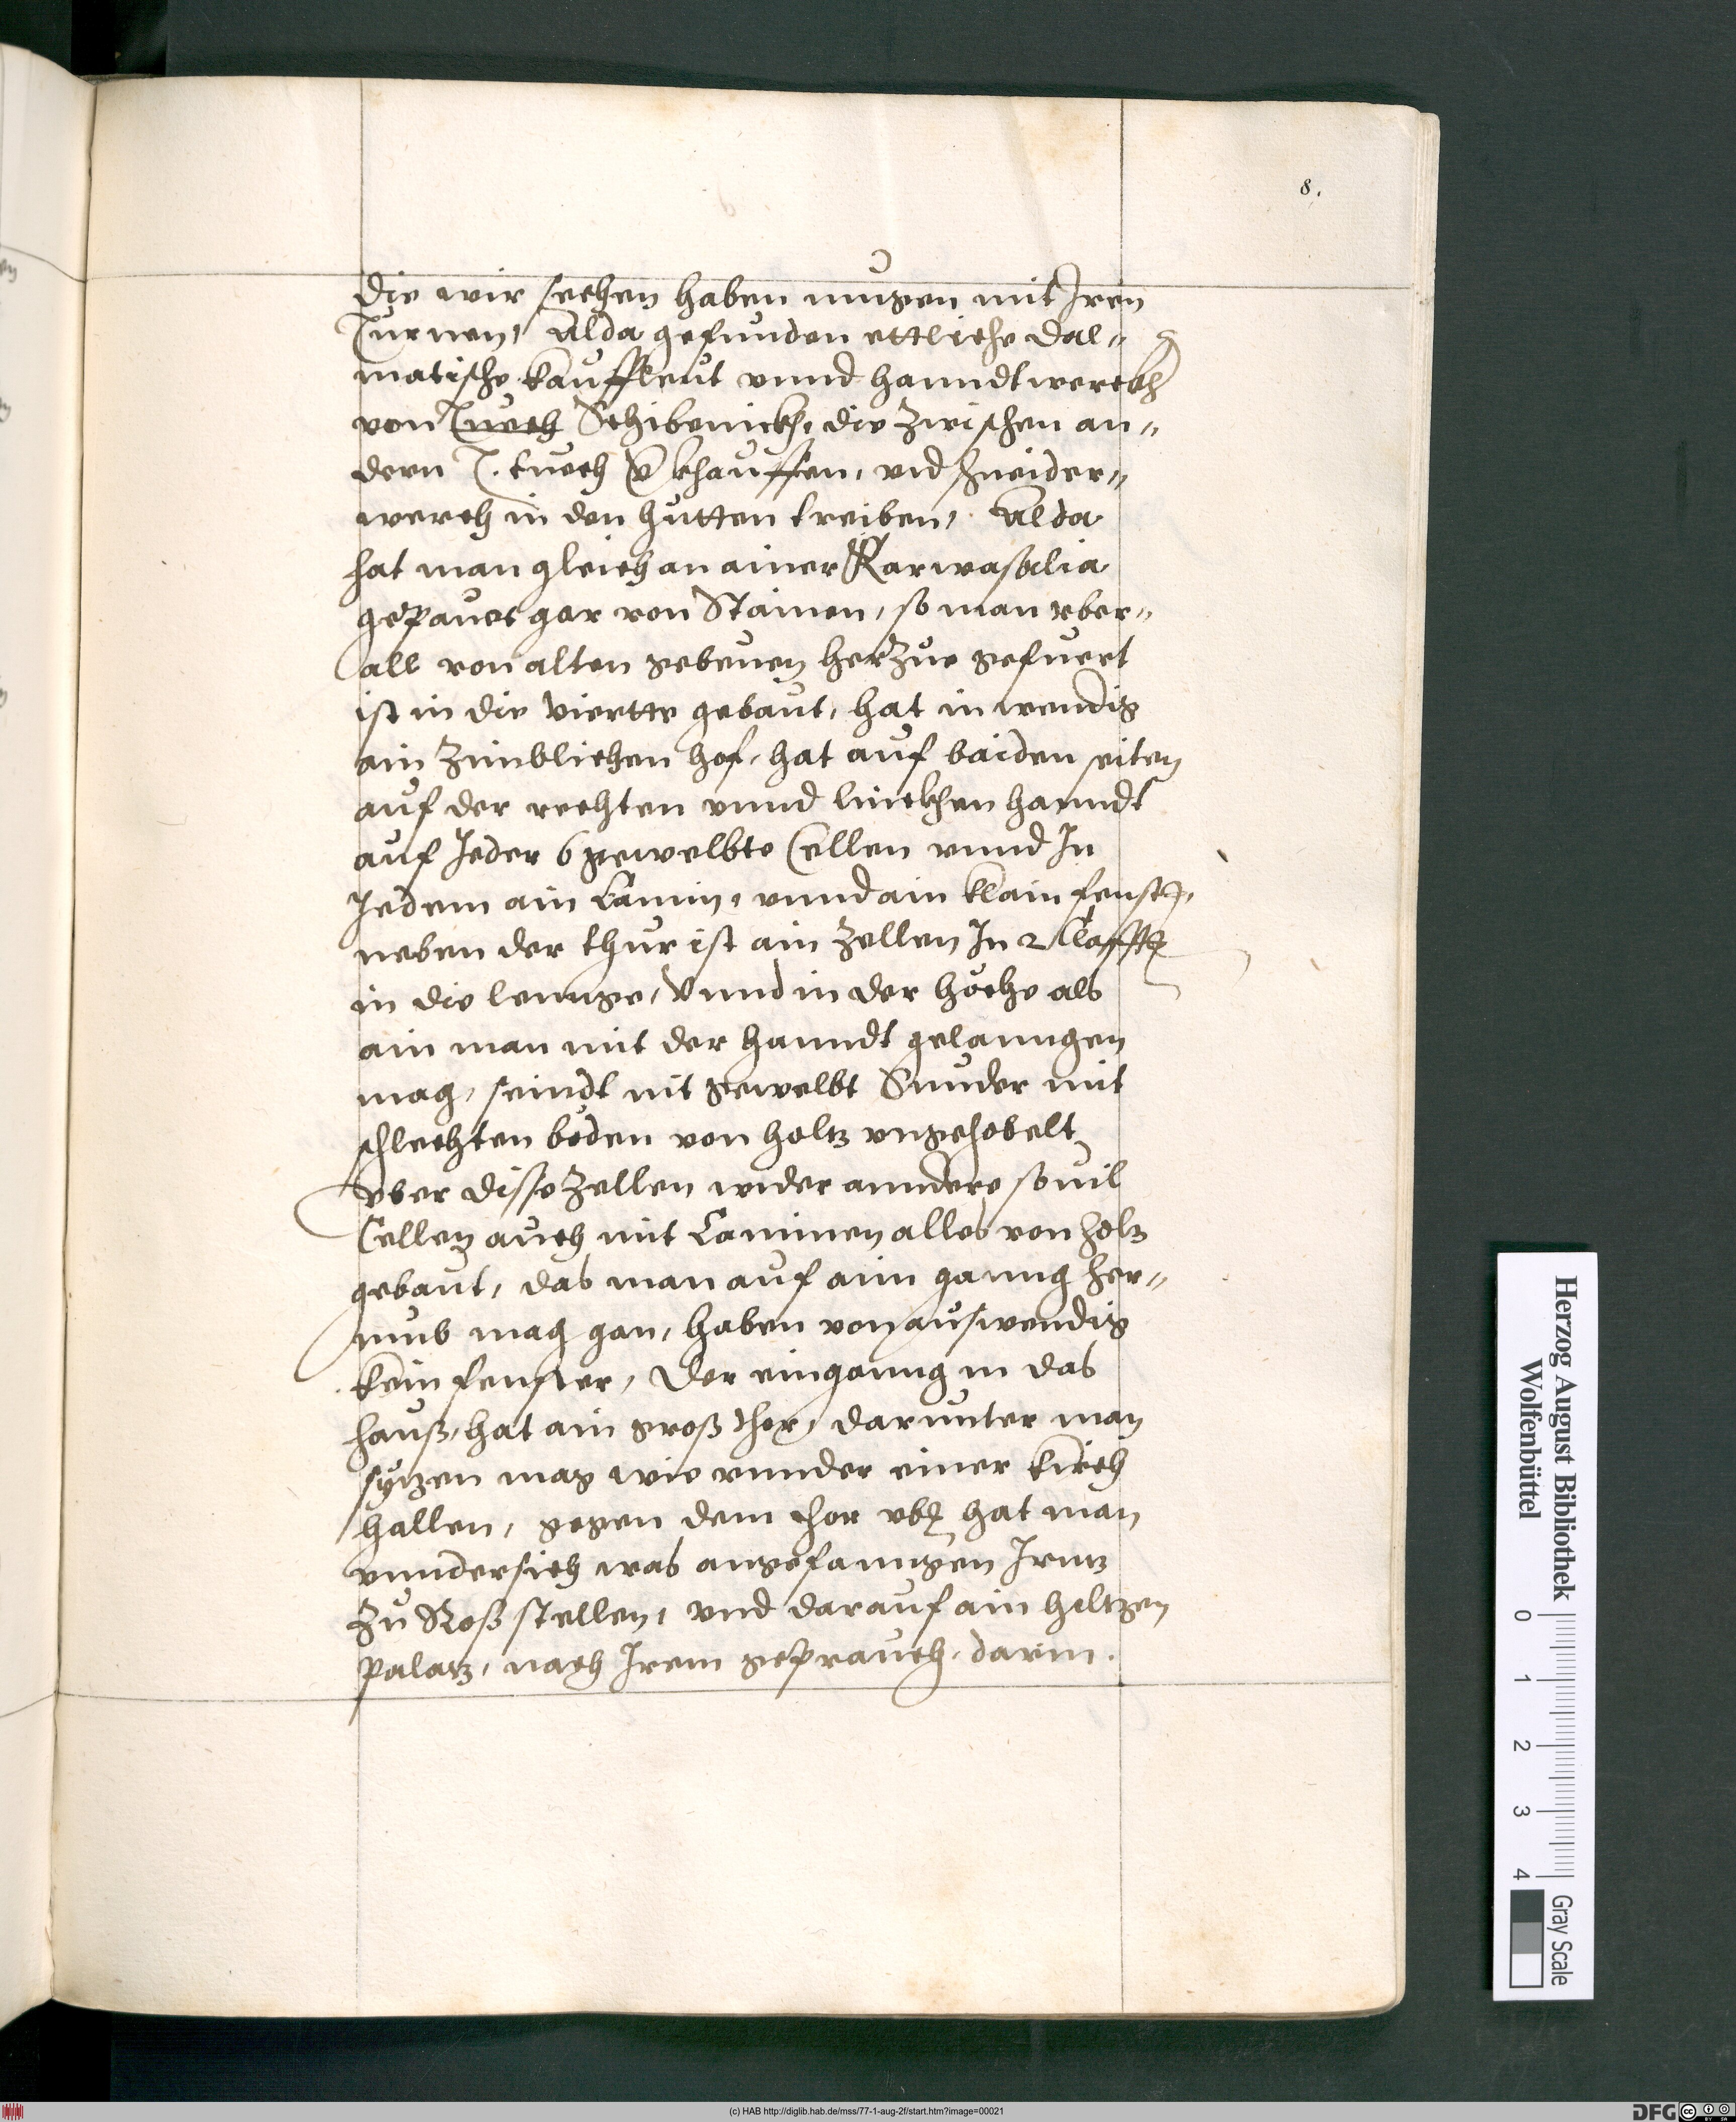 8.
die wir sechen haben mugen mit Jren
Turnen, Alda gefunden ettliche Dal„
matische kauffleut vnnd hanndtwerckh
von Tuech Schibenickh, die zwischen an„
dern T. tuech verkhauffen, vnd schneider„
werch in den hutten treiben, Alda
hat man gleich an ainer Karwasalia
gepauet gar von Stainen, so man vber„
all von alten gebeuen herzue gefuert
ist in die viertte gebaut, hat inwendig
ain zimblichen hof, hat auf baiden seiten
auf der rechten vnnd linckhen hanndt
auf Jeder 6 gewelbte Cellen vnnd Jn
Jedem ain Camin, vnnd ain klain fenster,
neben der thur ist ain zellen Jn 2 Claffter
in die lennge, Vnnd in der höche als
ain man mit der hanndt gelanngen
mag, seindt nit gewelbt Sunder mit
schlechten böden von holtz vngehobelt
vber disse zellen wider anndere souil
Cellen auch mit Caminen alles von holtz
gebaut, das man auf aim ganng her„
umb mag gan, haben von auswendig
kein fenster, Der einganng in das
hauß, hat ain groß thor, darunter man
sytzen mag wie vnnder einer kirch
hallen, gegen dem thor vber hat man
vnndersich was angefanngen Jrntz
Zu Roß stellen, vnd darauf ain hiltzen
palatz, nach Jrem geprauch, darin.
Herzog August Bibliothek
Wolfenbüttel
0 1 2 3 4
Gray Scale
(c) HAB http://diglib.hab.de/mss/77-1-aug-2f/start.htm?image=00021
DFG